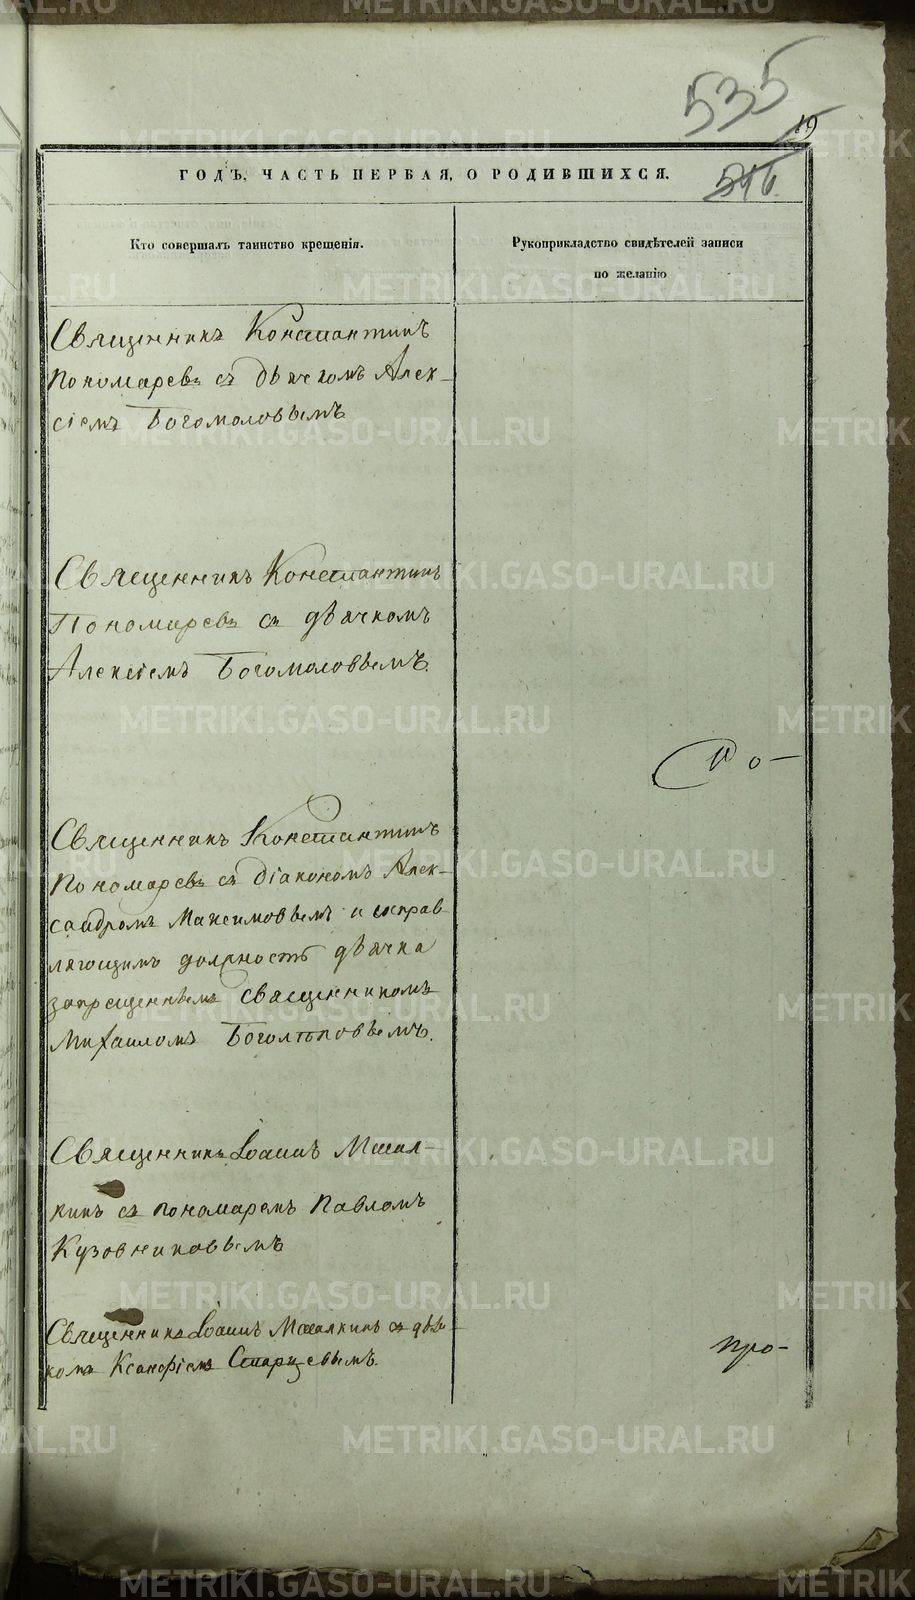 535
19
516.
ГОДЪ, ЧАСТЬ ПЕРВАЯ, О РОДИВШИХСЯ.
Кто совершалъ таинство крещенія.
Рукоприкладство свидѣтелей записи
по желанію
Священникъ Константинъ
Пономаревъ съ дьячкомъ Алек-
сіемъ Богомоловымъ
Священникъ Константинъ
Пономаревъ съ дьячкомъ
Алексіемъ Богомоловымъ.
Священникъ Константинъ
Пономаревъ съ діакономъ Алек-
сандромъ Максимовымъ и исправ-
ляющимъ должность дьячка
запрещеннымъ священникомъ
Михаиломъ Боголѣповымъ.
Священникъ Іоаннъ
съ пономаремъ Павломъ
Кузовниковымъ
Священникъ Іоаннъ съ дьяч-
комъ Ксанфіемъ Старцевымъ.
про-
METRIKI.GASO-URAL.RU